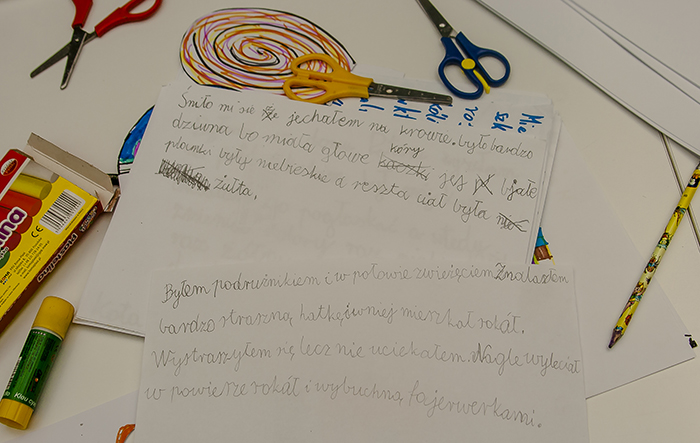 Śniło mi się że jechałem na krowie. było bardzo
dziwna bo miała głowe kóry jej białe
plamki były niebieskie a reszta ciał była
żułta.
Byłem podrużnikiem i w połowie zwieżęciem Znalazłem
bardzo straszną hatkę i w niej mieszkał rokał.
Wystraszyłem się lecz nie uciekałem. Nagle wyleciał
w powiesze rokał i wybuchną fajerwerkami.